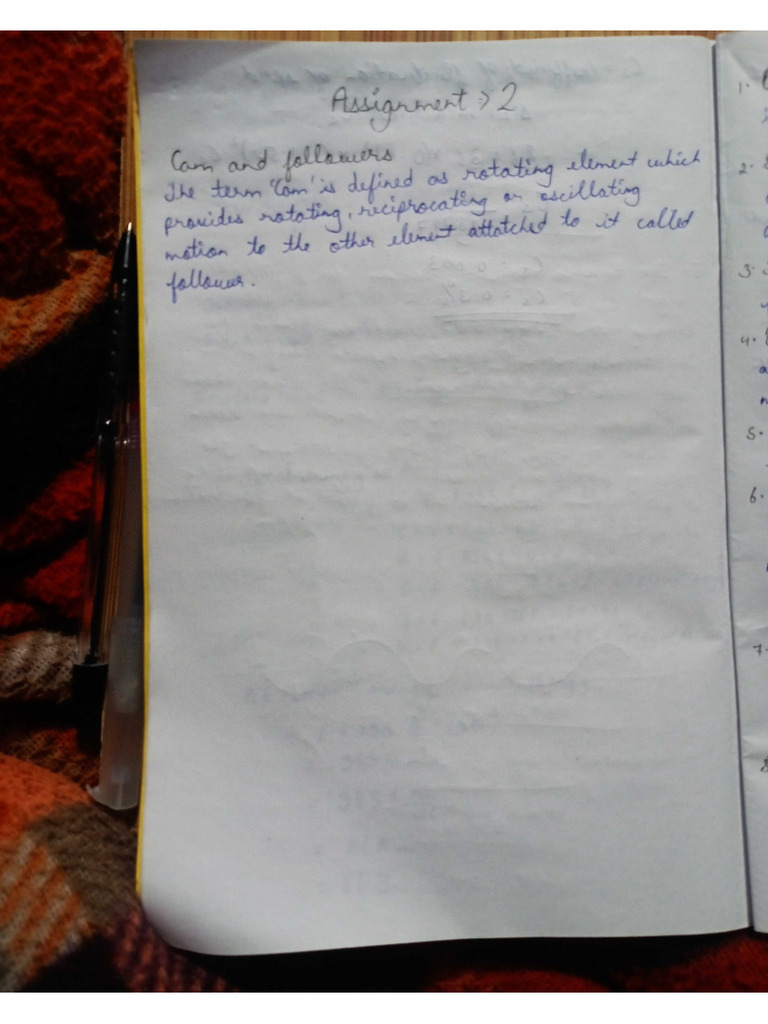 Assignment :→ 2
Cam and followers
The term 'Cam' is defined as rotating element which
provides rotating, reciprocating or oscillating
motion to the other element attatched to it called
follower.
1.
2.
3.
4.
a
5.
6.
7.
8